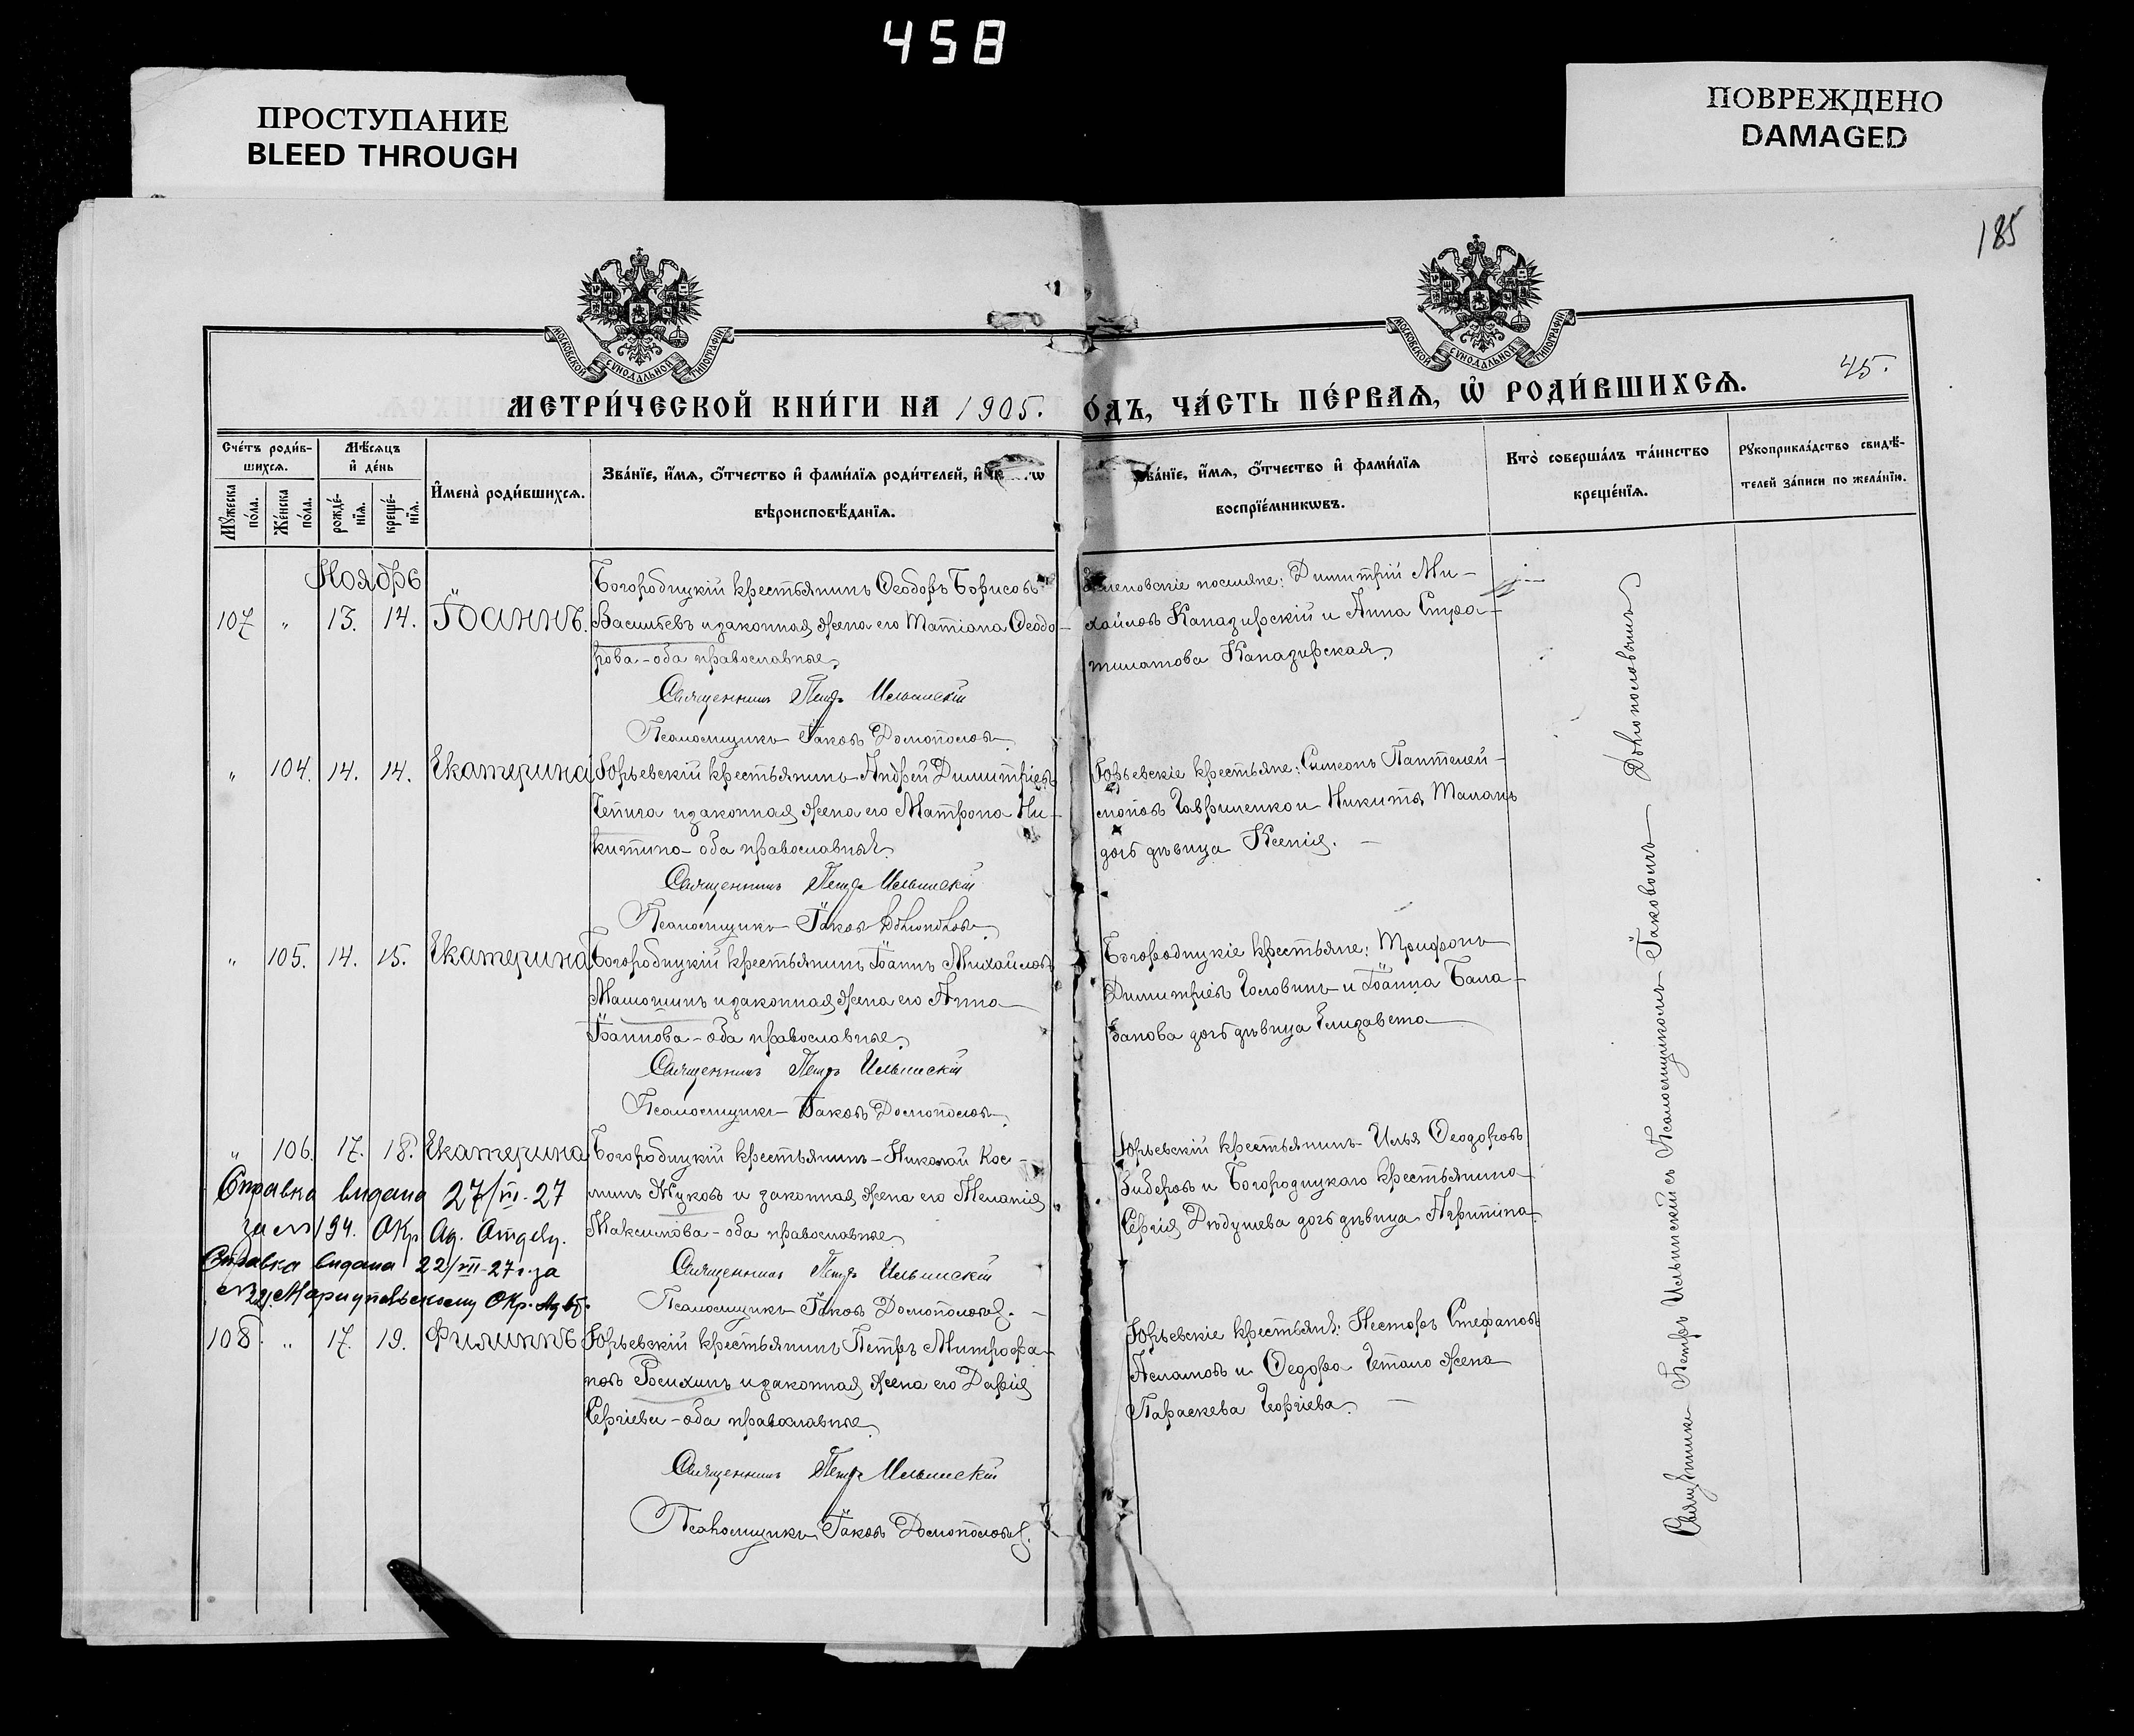 458
ПРОСТУПАНИЕ
BLEED THROUGH
ПОВРЕЖДЕНО
DAMAGED
185
МОСКОВСКОЙ СѴНОДАЛЬНОЙ ТИПОГРАФІИ
МОСКОВСКОЙ СѴНОДАЛЬНОЙ ТИПОГРАФІИ
45.
МЕТРИ́ЧЕСКОЙ КНИ́ГИ НА 1905. ОДЪ, ЧА́СТЬ ПЕ́РВАѦ, Ѡ҆ РОДИ́ВШИХСѦ.
Сче́тъ роди́в-
шихсѧ.
Мꙋ́жеска по́ла.
Же́нска по́ла.
Мѣ́сѧцъ
и҆ де́нь
рожде́-
нїѧ.
креще́-
нїѧ.
И҆мена̀ роди́вшихсѧ.
Зва́нїе, и҆́мѧ, ѻ҆́тчество и҆ фами́лїѧ роди́телей, и҆
вѣроисповѣ́данїѧ.
Зва́нїе, и҆́мѧ, ѻ҆́тчество и҆ фами́лїѧ
воспрїе́мникѡвъ.
Кто̀ соверша́лъ та́инство
креще́нїѧ.
Рꙋкоприкла́дство свидѣ́-
телей за́писи по жела́нїю.
Ноябрь
107 " 13. 14. Іоаннъ.
Богородицкій крестьянинъ Ѳеодоръ Борисовъ
Васильевъ и законная жена его Татіана Ѳеодо-
рова - оба православные.
Священникъ Петръ Ильинскій
Псаломщикъ Іаковъ Домополовъ
поселяне: Димитрій Ми-
хайловъ Капазирскій и Анна Стра-
тилатова Капазирская.
" 104. 14. 14. Екатерина
Юрьевскій крестьянинъ Андрей Димитріевъ
Чепига и законная жена его Матрона Ни-
китина - оба православные.
Священникъ Петръ Ильинскій
Псаломщикъ Іаковъ
Юрьевскіе крестьяне: Симеонъ Пантелей-
моновъ Гавриленко и Никиты Таланъ
дочь дѣвица Ксенія.
" 105. 14. 15. Екатерина
Богородицкій крестьянинъ Іоаннъ Михайловъ
Машошинъ и законная жена его Анна
Іоаннова - оба православные.
Священникъ Петръ Ильинскій
Псаломщикъ Іаковъ Домополовъ
Богородицкіе крестьяне: Трифонъ
Димитріевъ Головинъ и Іоанна Бала-
банова дочь дѣвица Елизавета
" 106. 17. 18. Екатерина
Богородицкій крестьянинъ - Николай Кос-
минъ Жуковъ и законная жена его Меланія
Максимова - оба православные
Священникъ Петръ Ильинскій
Псаломщикъ Іаковъ Домополовъ.
Юрьевскій крестьянинъ Илья Ѳеодоровъ
Зиберовъ и Богородицкаго крестьянина
Сергія Дѣдушева дочь дѣвица Агриппина
Справка видана 27/VII-27
за №194. Окр. Ад. Отделу.
Справка видана 22/VII-27 г. за
Мариупольскому Окр. Адвд.
108. " 17. 19. Филиппъ
Юрьевскій крестьянинъ Петръ Митрофа-
новъ Росихинъ и законная жена его Дарія
Сергіева - оба православные
Священникъ Петръ Ильинскій
Псаломщикъ Іаковъ Домополовъ.
Юрьевскіе крестьяне: Несторъ Стефановъ
Асламовъ и Ѳедора Четало жена
Параскева Георгіева.
Священникъ Петръ Ильинскій съ Псаломщикомъ Іаковомъ Домополовымъ